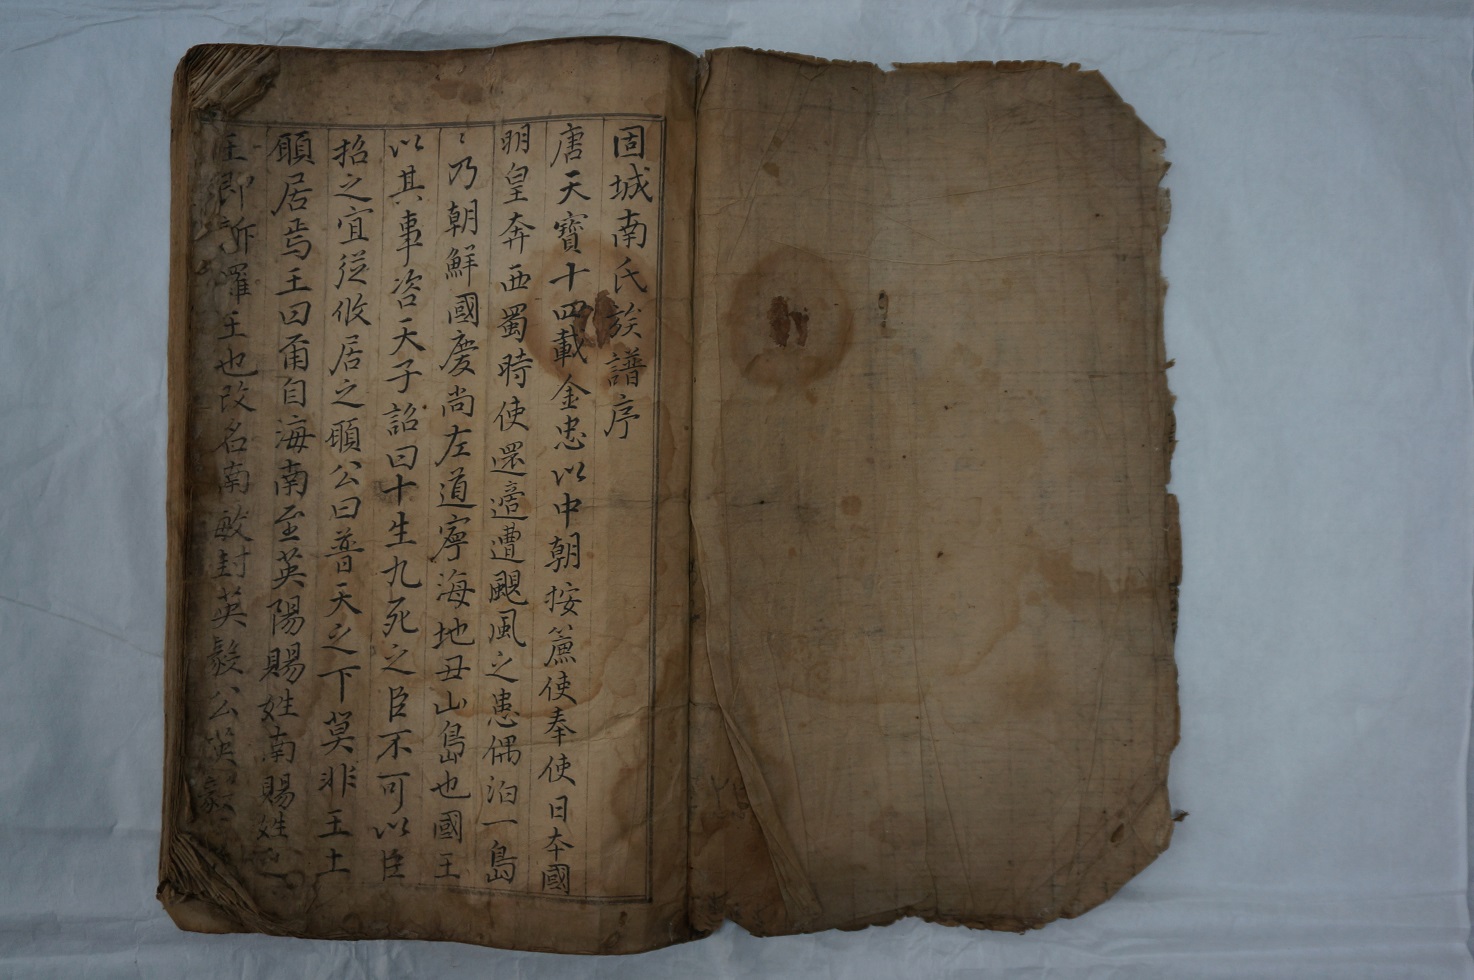 固城南氏族譜序
唐天寶十四載金忠以中朝按簾使奉使日本國
明皇奔西蜀時使還適遭颶風之患偶泊一島
〻乃朝鮮國慶尚左道寧海地丑山島也國王
以其事咨天子詔曰十生九死之臣不可以臣
招之宜從攸居之願公曰普天之下莫非王土
願居焉王曰甭自海南至英陽賜姓南賜姓
王即新羅王也改名南敏封英毅公英毅